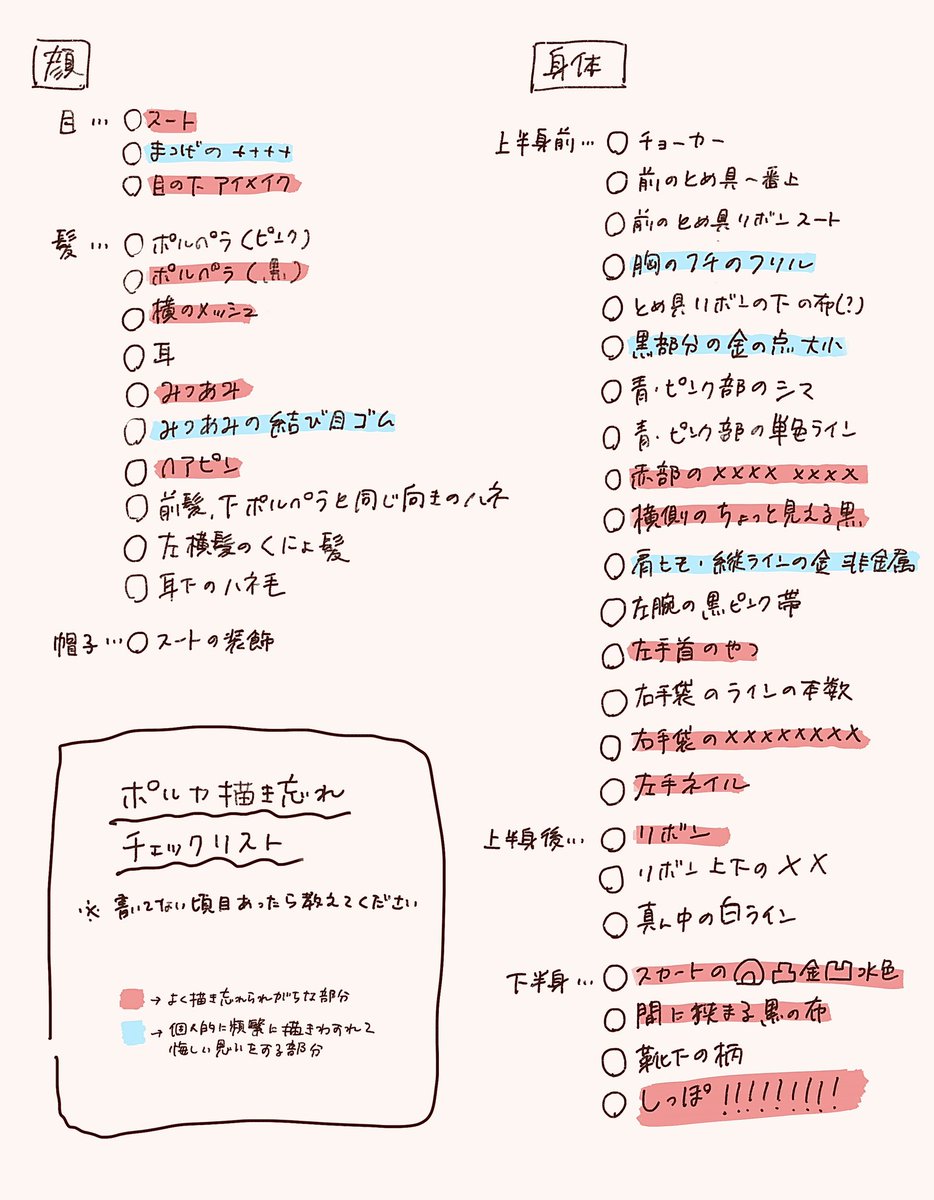 顔
目… ○スート
○まつげの++++
○目の下アイメイク
髪… ○ポルペラ(ピンク)
○ポルペラ(黒)
○横のメッシュ
○耳
○みつあみ
○みつあみの結び目ゴム
○ヘアピン
○前髪、下ポルペラと同じ向きのハネ
○左横髪のくによ髪
○耳下のハネ毛
帽子…○スートの装飾
ポルカ描き忘れ
チェックリスト
※ 書いてない項目あったら教えてください
→よく描き忘れられがちな部分
→個人的に頻繁に描きわすれて
悔しい思いをする部分
身体
上半身前…○チョーカー
○前のとめ具一番上
○前のとめ具リボンスート
○胸のフチのフリル
○とめ具リボンの下の布(?)
○黒部分の金の点大小
○青・ピンク部のシマ
○青・ピンク部の単色ライン
○赤部の×××× ××××
○横側のちょっと見える黒
○肩もモ・縦ラインの金 非金属
○左腕の黒ピンク帯
○左手首のやつ
○右手袋のラインの本数
○右手袋の××××××××
○左手ネイル
上半身後…○リボン
○リボン上下の××
○真ん中の白ライン
下半身…○スカートの凸金凹水色
○間に挟まる黒の布
○靴下の柄
○しっぽ!!!!!!!!!